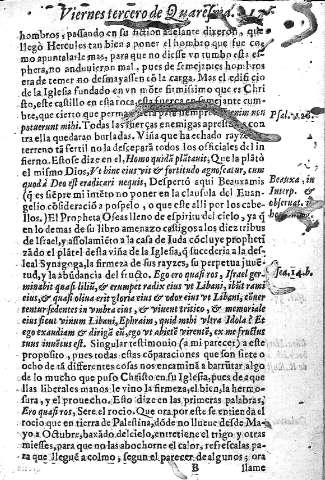 Viernes tercero de Quaresma.
hombros, passando en su ficcion adelante dixeron, que
llegò Hercules tan bien a poner el hombro que fue co-
mo apuntalarle mas, para que no diesse vn tumbo esta es-
phera, no anduuieron mal, pues de semejantes hombros
era de temer no desmayassen cõ la carga. Mas el edificio
de la Iglesia fundado en vn mõte firmissimo que es Chri
sto, este castillo en esta roca, esta fuerça en semejante cum-
bre, que cierto que permanecerà para siempre, enim non
potuerunt mihi. Todas las fuerças enemigas aprestadas con
tra ella quedaràn burladas. Viña que ha echado rayzes en
terreno tã fertil no la desceparà todos los officiales del in
fierno. Esto se dize en el, Homo quidã plãtauit, Que la plãtò
el mismo Dios, Vt hinc eius vis & fortitudo agnoscatur, cum
quod à Deo est eradicari nequis, Despertò aqui Beauxamis
(q̃ es siẽpre mi intẽto no poner en la clausula del Euan-
gelio cõsideraciõ a pospelo, o que este alli por los cabe-
llos.) El Propheta Oseas lleno de espiritu del cielo, ya q̃
en lo demas de su libro amenazò castigos a los diez tribus
de Israel, y assolamiẽto a la casa de Iuda cõcluye prophet
zãdo el plãtel desta viña de la Iglesia, q̃ sucederia a la des-
leal Synagoga, la firmeza de sus rayzes, su perpetua juuẽ-
tud, y la abũdancia del fructo. Ego ero quasi ros, Israel ger-
minabit quasi liliũ, & erumpet radix eius vt Libani, ibũt rami
eius, & quasi oliua erit gloria eius & odor eius vt Libani, conuer
tentur sedentes in vmbra eius, & viuent tritico, & memoriale
eius sicut vinum Libani, Ephraim, quid mihi vltra Idola? Et
ego exaudiam & dirigã eũ, ego vt abietẽ virentẽ, ex me fructus
tuus inuẽtus est. Singular testimonio (a mi parecer) a este
proposito, pues todas estas cõparaciones que son siete o
ocho de tã differentes cosas nos encaminã a barrũtar algo
de lo mucho que puso Christo en su Iglesia, pues de aque
llas liberales manos le vino la firmeza, el bien, la hermo-
sura, y el prouecho. Esto dize en las primeras palabras,
Ero quasi ros, Serè el rocio. Que ora por este se entienda el
rocio que en tierra de Palestina, dõde no llueue desde Ma-
yo a Octubre, baxãdo del cielo, entretiene el trigo y otras
miesses, para que no las abochorne el calor, refrescalas pa-
ra que lleguẽ a colmo, segun el parecer de algunos; ora
B llame
Psal. 128.
Beauxa, in
Interp. &
obseruat.
Osea. 14. b.